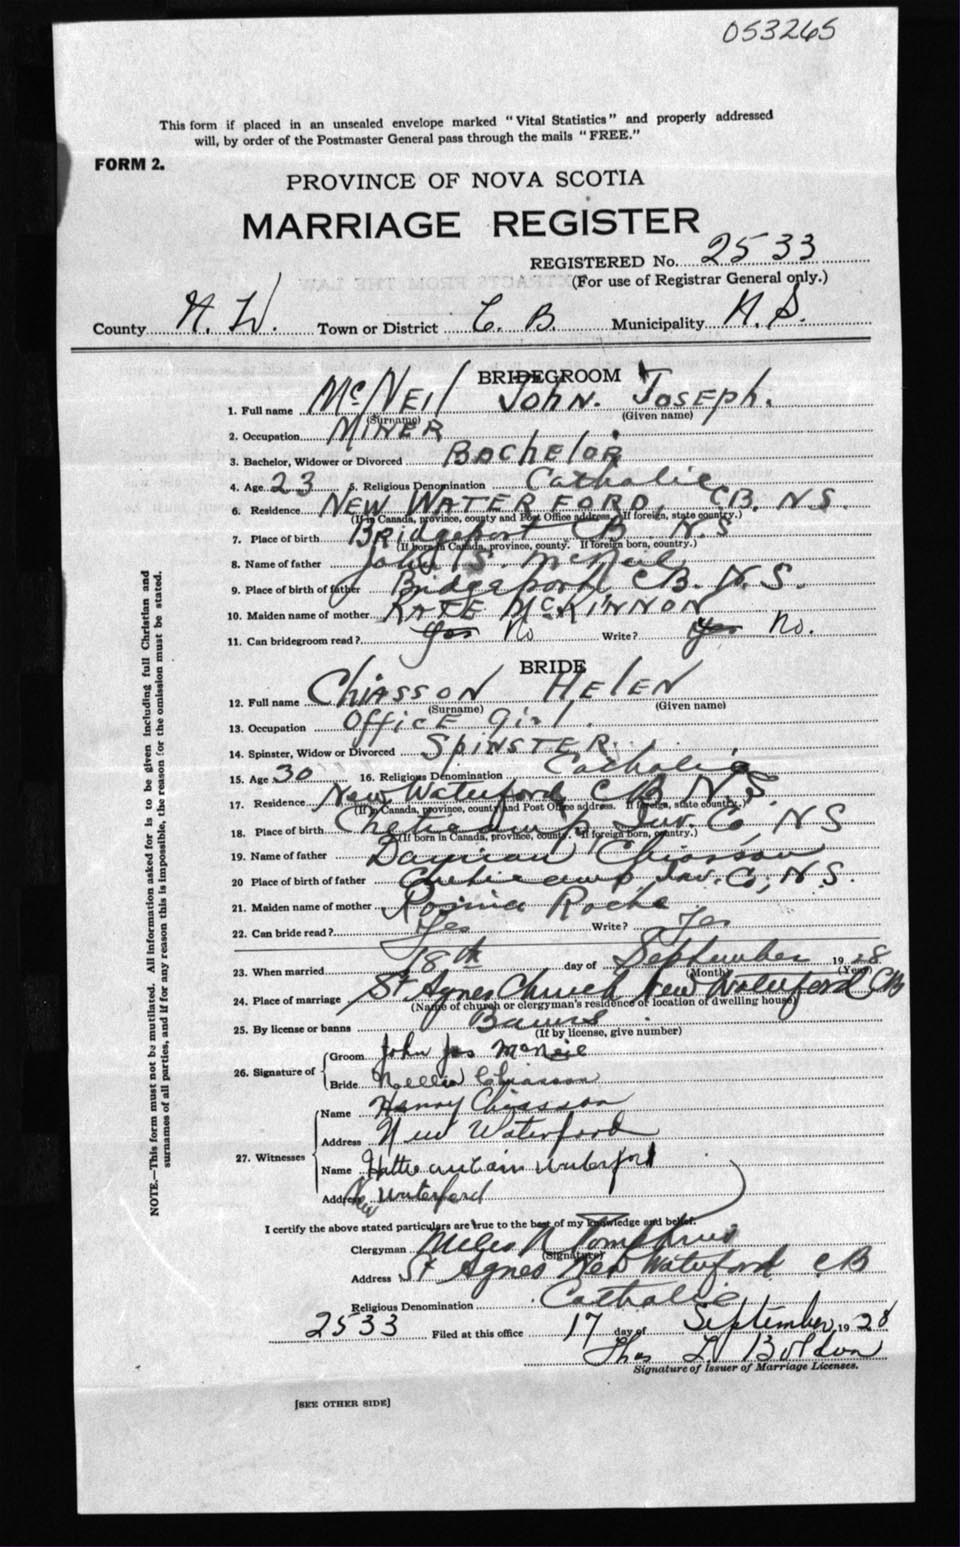 053265
This form if placed in an unsealed envelope marked "Vital Statistics" and properly addressed
will, by order of the Postmaster General pass through the mails "FREE."
FORM 2.
PROVINCE OF NOVA SCOTIA
MARRIAGE REGISTER
REGISTERED No. 2533
(For use of Registrar General only.)
County N. W. Town or District C. B. Municipality N. S.
BRIDEGROOM
1. Full name McNeil John Joseph.
(Surname) (Given name)
2. Occupation Miner
3. Bachelor, Widower or Divorced Bachelor
4. Age 23 5. Religious Denomination Catholic
6. Residence New Waterford, CB. N S.
(If in Canada, province, county and Post Office address. If foreign, state country.)
7. Place of birth Bridgeport C B. N. S
(If born in Canada, province, county. If foreign born, country.)
8. Name of father John S. McNeil
9. Place of birth of father Bridgeport CB. N. S.
10. Maiden name of mother Kate McKinnon
11. Can bridegroom read? Yes No Write? Yes No.
BRIDE
12. Full name Chiasson Helen
(Surname) (Given name)
13. Occupation Office Girl.
14. Spinster, Widow or Divorced Spinster.
15. Age 30 16. Religious Denomination Catholic
17. Residence New Waterford CB N. S.
(If in Canada, province, county and Post Office address. If foreign, state country.)
18. Place of birth Cheticamp Inv. Co N S
(If born in Canada, province, county. If foreign born, country.)
19. Name of father Damian Chiasson
20 Place of birth of father Cheticamp Inv. Co, N. S.
21. Maiden name of mother Roche
22. Can bride read? Yes Write? Yes
23. When married 18th day of September 1928
(Month) (Year)
24. Place of marriage St Agnes Church New Waterford CB
(Name of church or clergyman's residence or location of dwelling house)
25. By license or banns Banns
(If by license, give number)
26. Signature of Groom John Jos McNeil
Bride Nellie Chiasson
27. Witnesses Name Henry Chiasson
Address New Waterford
Name Hattie Waterford
Address New Waterford
I certify the above stated particulars are true to the best of my knowledge and belief.
Clergyman Miles N Tompkins
(Signature)
Address St Agnes New Waterford CB
Religious Denomination Catholic
2533 Filed at this office 17 day of September 1928
Thos L Boldon
Signature of Issuer of Marriage Licenses.
[SEE OTHER SIDE]
NOTE.—This form must not be mutilated. All information asked for is to be given including full Christian and
surnames of all parties, and if for any reason this is impossible, the reason for the omission must be stated.